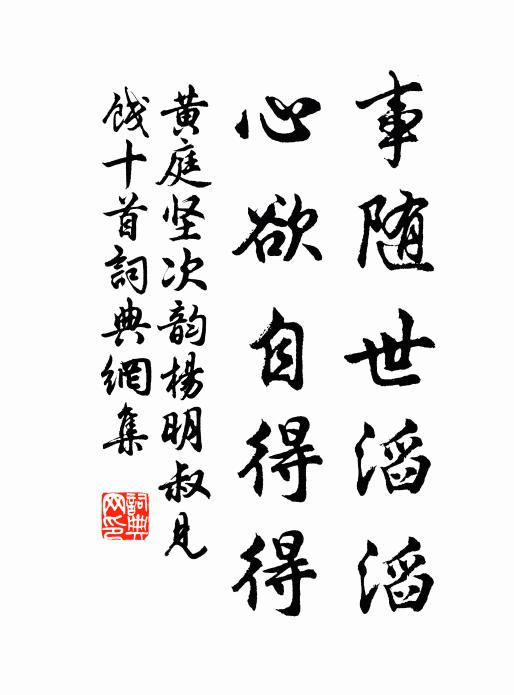 事随世滔滔
心欲自得得
黄庭坚次韵楊明叔见
餞十首詞典網集
詞典
网印